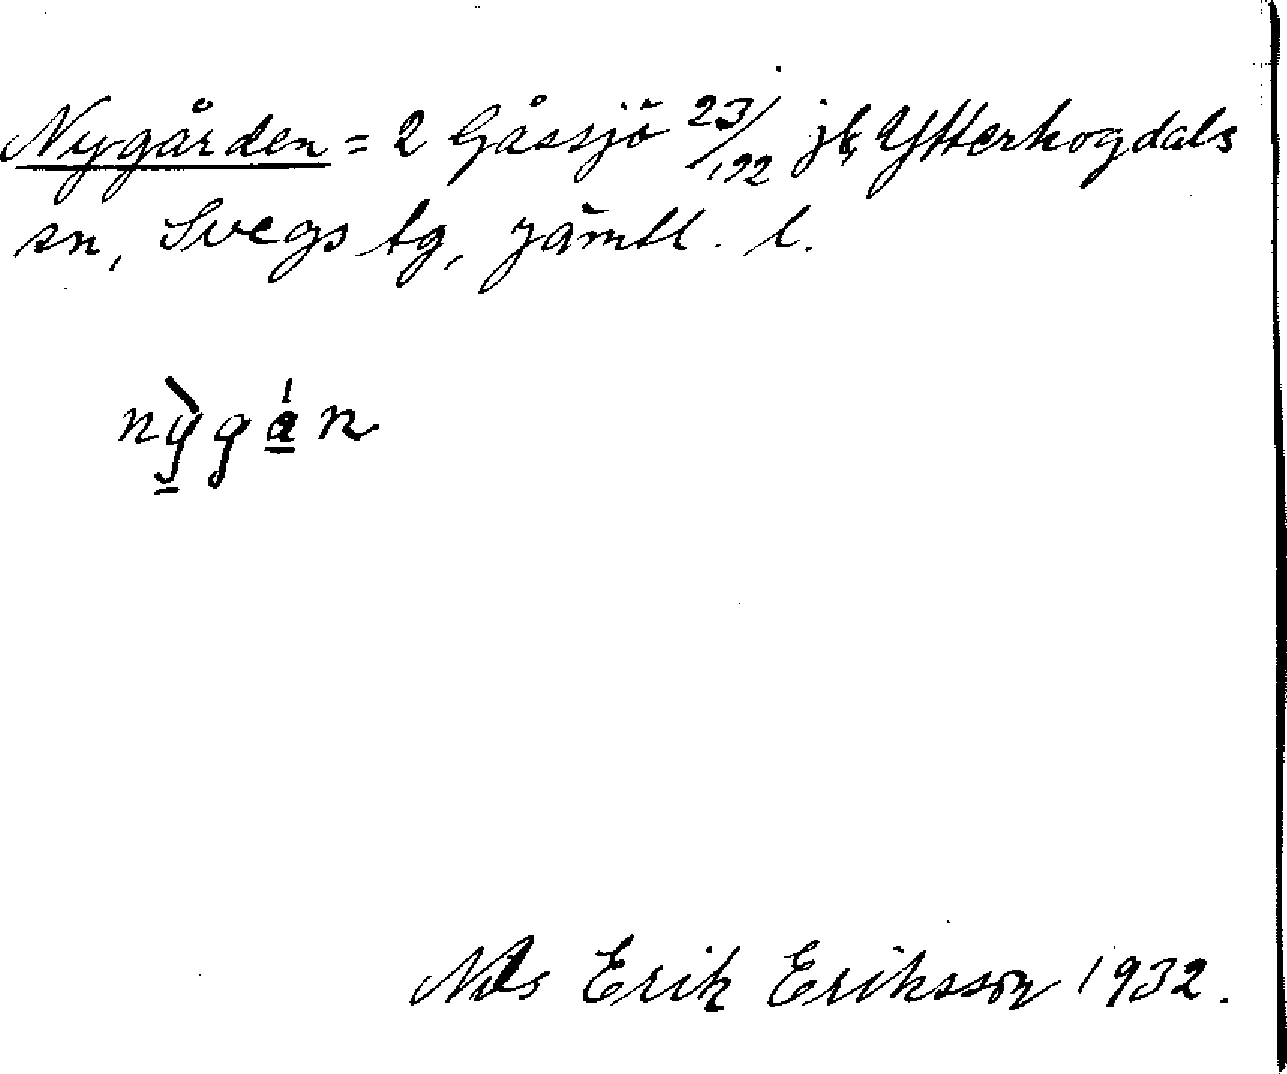 Nygården = 2 Gåssjö 23/192 jb, Ytterhogdals
sn, Svegs tg, Jämtl. l.
nỳgán
Nils Erik Eriksson 1932.